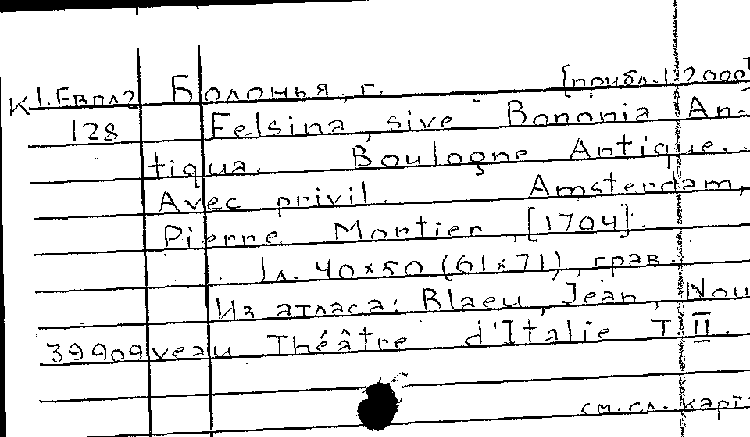 К 1. Евпл2 Болонья, г. [прибл. 1:2000]
128 Felsina, sive Bononia An-
tiqua. Boulogne Antique.
Avec privil. Amsterdam,
Pierre Mortier, [1704].
1 л. 40×50 (61×71), грав.
Из атласа: Blaeu, Jean, Nou
39909 veau Théâtre d'Italie T. II.
см. сл. карт.